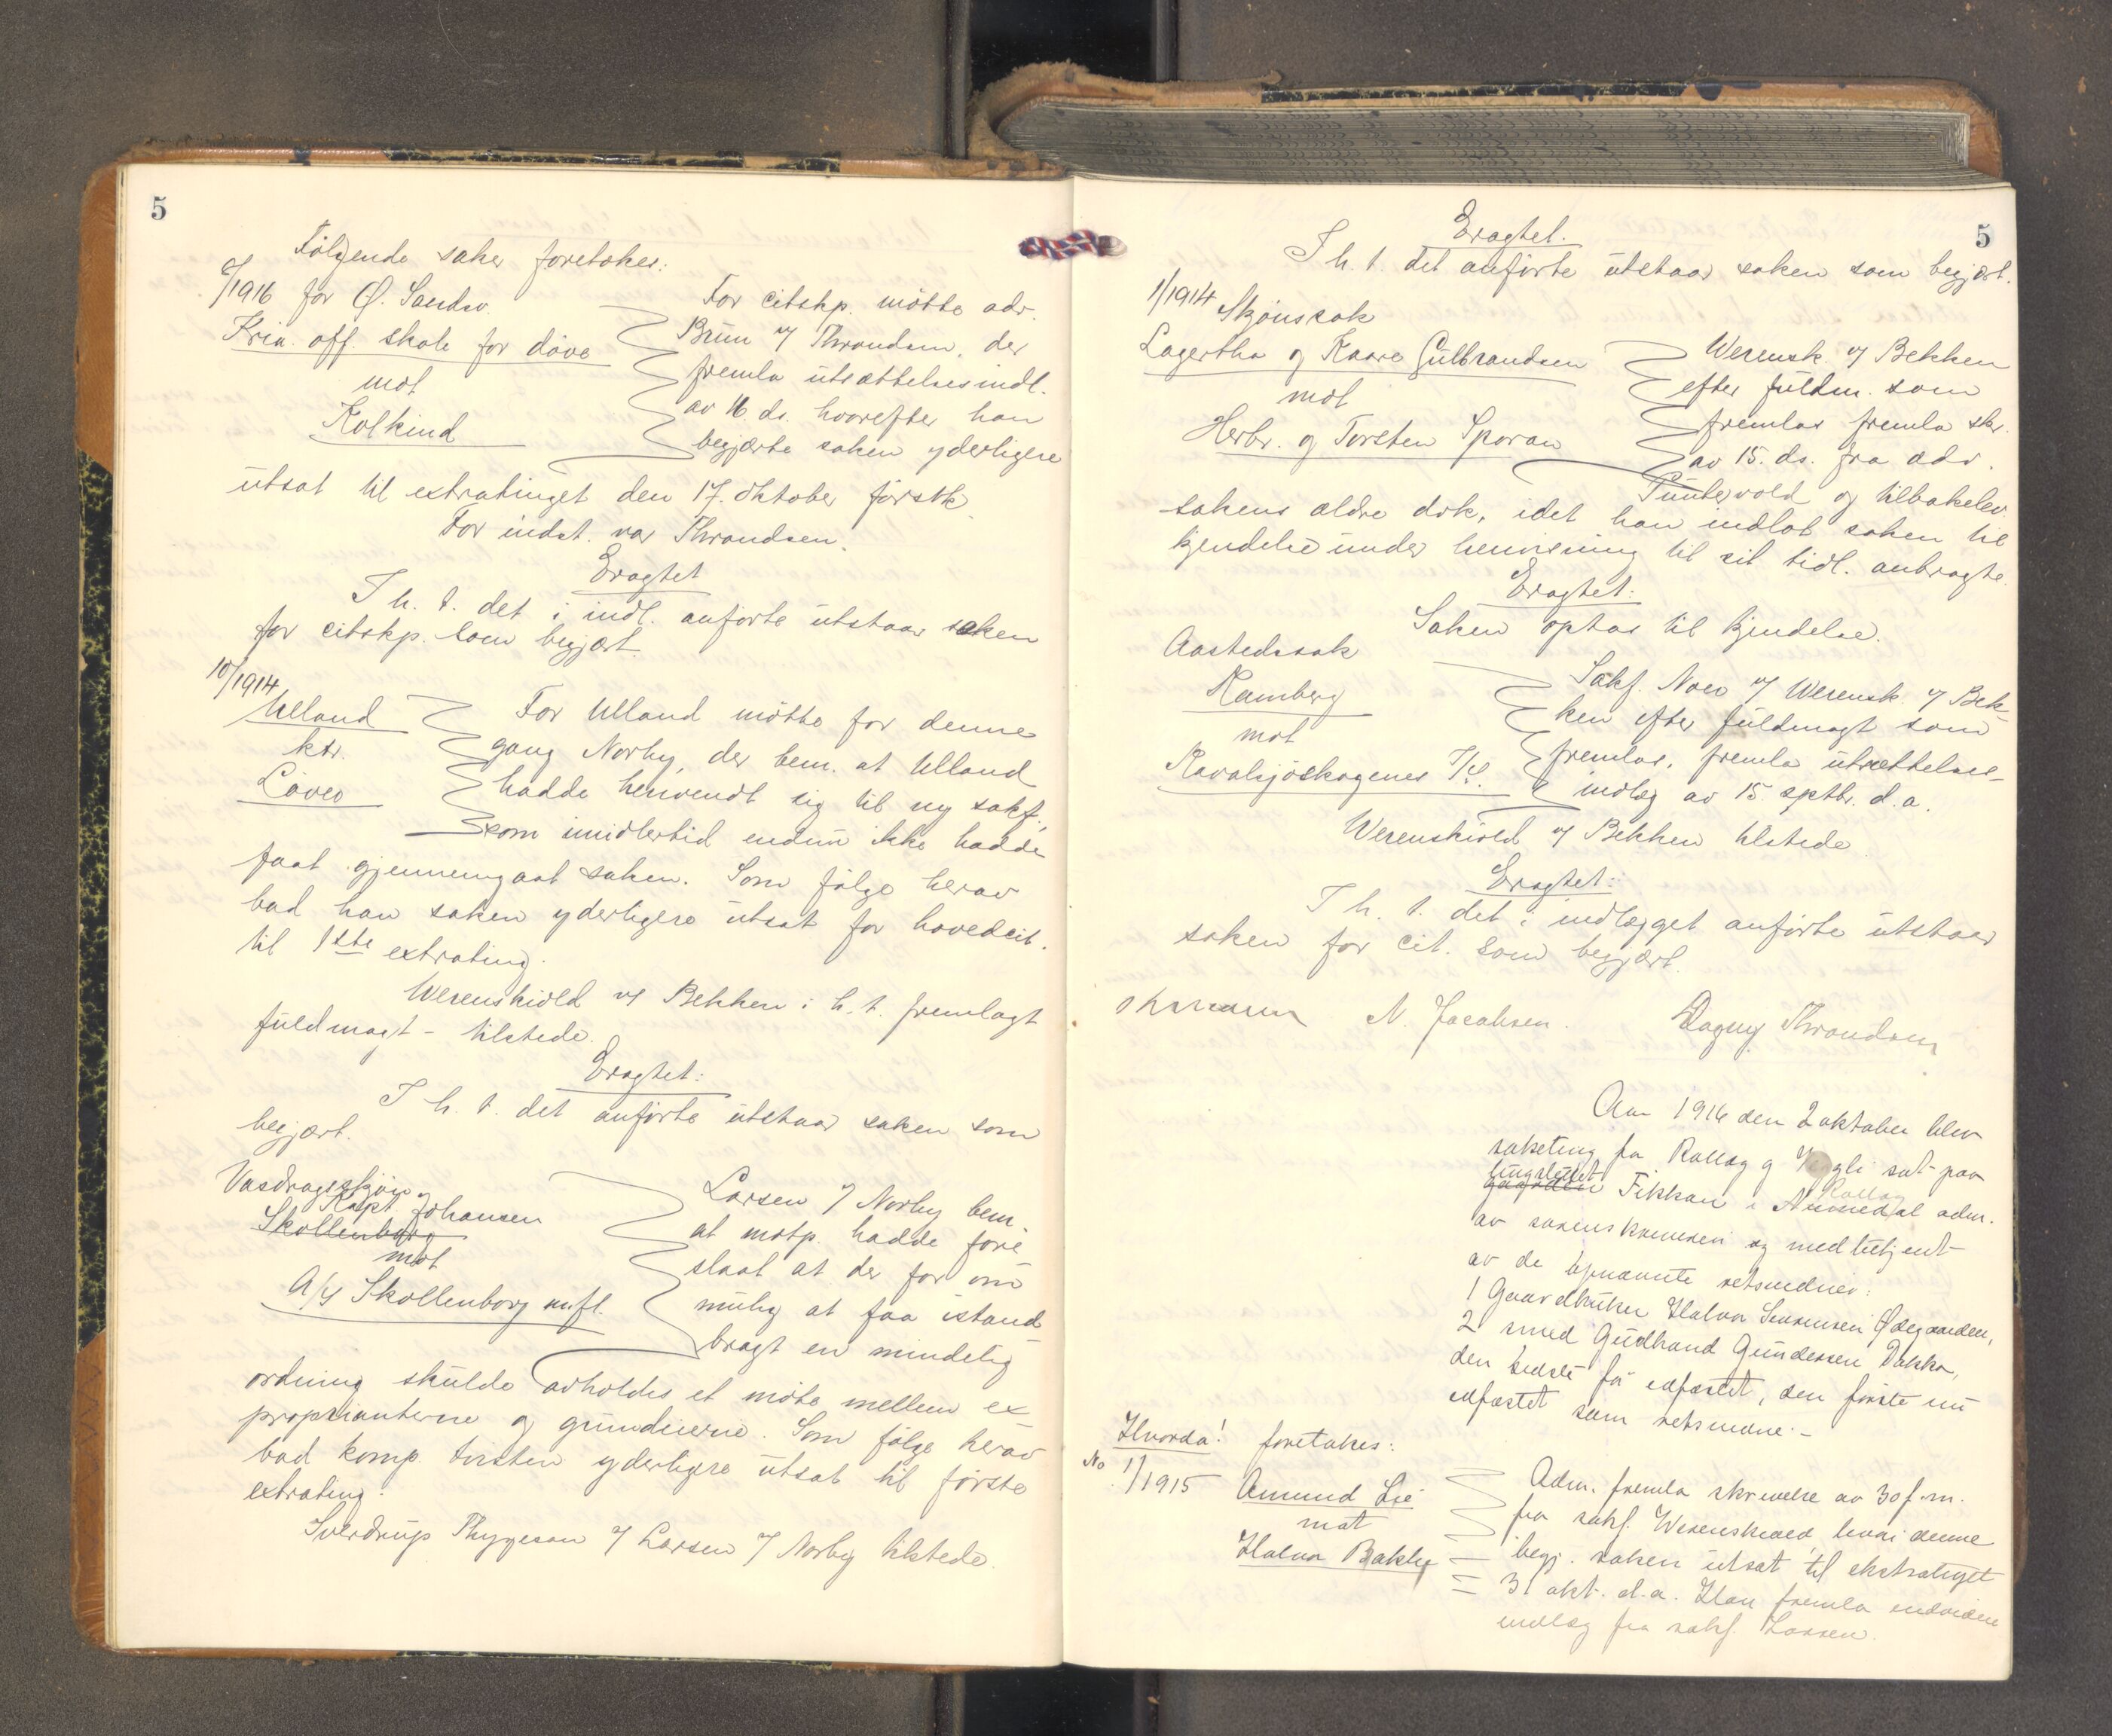 5
Følgende saker foretokes:
6/1916 for Ø. Sandsv.
Kria. off. skole for døve
mot
Kolkind
For citskp. møtte adv.
Brun v/ Throndsen, der
fremla utsættelsesindl.
av 16. ds. hvorefter han
begjærte saken yderligere
utsat til extratinget den 17. oktober førstk.
For indst. var Throndsen.
Eragtet
I h. t. det i indl. anførte utstaar saken
for citskp. som begjært.
10/1914
Ulland
ktr.
Løver
For Ulland møtte for denne
gang Norby, der bem. at Ulland
hadde henvendt sig til ny sakf.,
som imidlertid endnu ikke hadde
faat gjennemgaat saken. Som følge herav
bad han saken yderligere utsat for hovedcit.
til 1ste extrating.
Werenskiold v/ Bekken i h. t. fremlagt
fuldmagt - tilstede.
Eragtet:
I h. t. det anførte utstaar saken som
begjært.
Vasdragsskjøn
Kapt. Johansen
Skollenborg
mot
A/S Skollenborg m.fl.
Larsen v/ Norby bem.
at motp. hadde fore
slaat at der for om
mulig at faa istand
bragt en mindelig
ordning skulde avholdes et møte mellem ex
proprianterne og grundeierne. Som følge herav
bad komp. tvisten yderligere utsat til første
extrating.
Sverdrup Thygeson v/ Larsen v/ Norby tilstede.
5
Eragtet.
I h. t. det anførte utstaar saken som begjært.
1/1914 Skjønssak
Lagertha og Kaare Gulbrandsen
mot
Herbr. og Torsten Sporan
Werensk. v/ Bekken
efter fuldm. som
fremlas fremla skr.
av 15. ds. fra adv.
Puntervold og tilbakelev.
sakens ældre dok., idet han indlot saken til
kjendelse under henvisning til sit tidl. anbragte.
Eragtet:
Saken optas til kjendelse.
Aastedssak
Ramberg
mot
Ravalsjøskogenes I/S.
Sakf. Noer v/ Werensk. v/ Bek-
ken efter fuldmagt som
fremlas, fremla utsættelses-
indlæg av 15. sptbr. d.a.
Werenskiold v/ Bekken tilstede.
Eragtet:
I h. t. det i indlægget anførte utstaar
saken for cit. som begjært.
N. Jacobsen. Dagny Throndsen
Aar 1916 den 2 oktober blev
saketing for Rollag og Veggli sat paa
tingstedet
gaarden Fikkan i Numedal adm.
Rollag
av sorenskriveren og medbetjent
av de opnævnte retsvidner:
1 Gaardbruker Halvor Simensen Ødegaarden,
2 smed Gudbrand Gundersen Bakka,
den sidste før edfæstet, den første nu
edfæstet som retsvidne.-
Hvorda! foretokes:
No 1/1915 Amund Lie
mot
Halvor Bakly
Adm. fremla skrivelse av 30 f.m.
fra sakf. Werenskiold hvori denne
begj. saken utsat til ekstratinget
31 okt. d.a. Han fremla endvidere
indlæg fra sakf. Larsen.